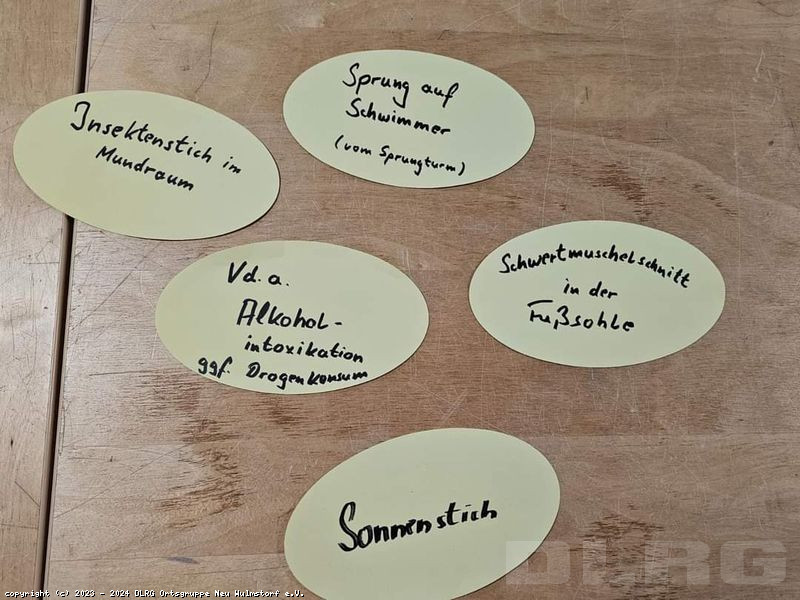 Insektenstich im
Mundraum
Sprung auf
Schwimmer
(vom Sprungturm)
Vd. a.
Alkohol-
intoxikation
ggf. Drogenkonsum
Schwertmuschelschnitt
in der
Fußsohle
Sonnenstich
DLRG
copyright (c) 2023 - 2024 DLRG Ortsgruppe Neu Wulmstorf e.V.